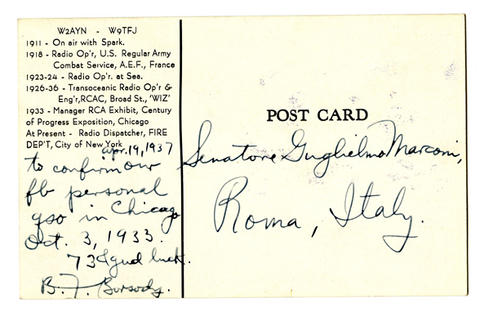 W2AYN - W9TFJ
1911 - On air with Spark.
1918 - Radio Op'r, U.S. Regular Army
Combat Service, A.E.F., France
1923-24 - Radio Op'r. at Sea.
1926-36 - Transoceanic Radio Op'r &
Eng'r, RCAC, Broad St., 'WIZ'
1933 - Manager RCA Exhibit, Century
of Progress Exposition, Chicago
At Present - Radio Dispatcher, FIRE
DEP'T, City of New York
Apr. 19, 1937
to confirm our
fb personal
qso in Chicago
Oct. 3, 1933.
73 & gud luck.
B. F. Borsody.
POST CARD
Senatore Guglielmo Marconi,
Roma, Italy.